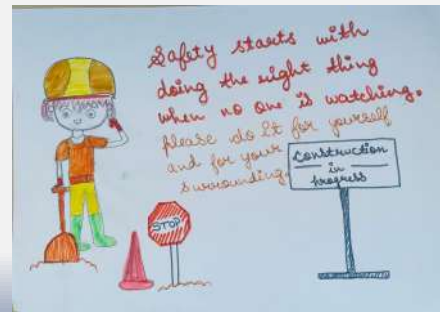 Safety starts with
doing the right thing
when no one is watching.
please do it for yourself
and for your
surrounding.
Construction
in
progress
STOP